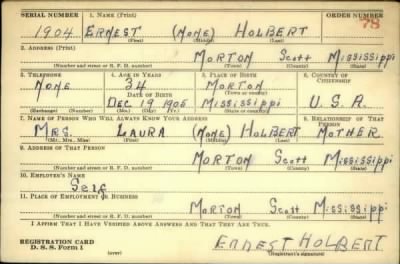 SERIAL NUMBER 1. NAME (Print) ORDER NUMBER
1904 ERNEST (NONE) HOLBERT 78
(First) (Middle) (Last)
2. ADDRESS (Print)
MORTON Scott Mississippi
(Number and street or R. F. D. number) (Town) (County) (State)
3. TELEPHONE 4. AGE IN YEARS 5. PLACE OF BIRTH 6. COUNTRY OF CITIZENSHIP
NONE 34 MORTON
DATE OF BIRTH (Town or county)
DEC 19 1905 Mississippi U.S.A.
(Exchange) (Number) (Mo.) (Day) (Yr.) (State or country)
7. NAME OF PERSON WHO WILL ALWAYS KNOW YOUR ADDRESS 8. RELATIONSHIP OF THAT PERSON
MRS. LAURA (NONE) HOLBERT MOTHER
(Mr., Mrs., Miss) (First) (Middle) (Last)
9. ADDRESS OF THAT PERSON
MORTON Scott Mississippi
(Number and street or R. F. D. number) (Town) (County) (State)
10. EMPLOYER'S NAME
Self
11. PLACE OF EMPLOYMENT OR BUSINESS
MORTON Scott Mississippi
(Number and street or R. F. D. number) (Town) (County) (State)
I AFFIRM THAT I HAVE VERIFIED ABOVE ANSWERS AND THAT THEY ARE TRUE.
REGISTRATION CARD ERNEST HOLBERT
D. S. S. Form 1 (over) (Registrant's signature)